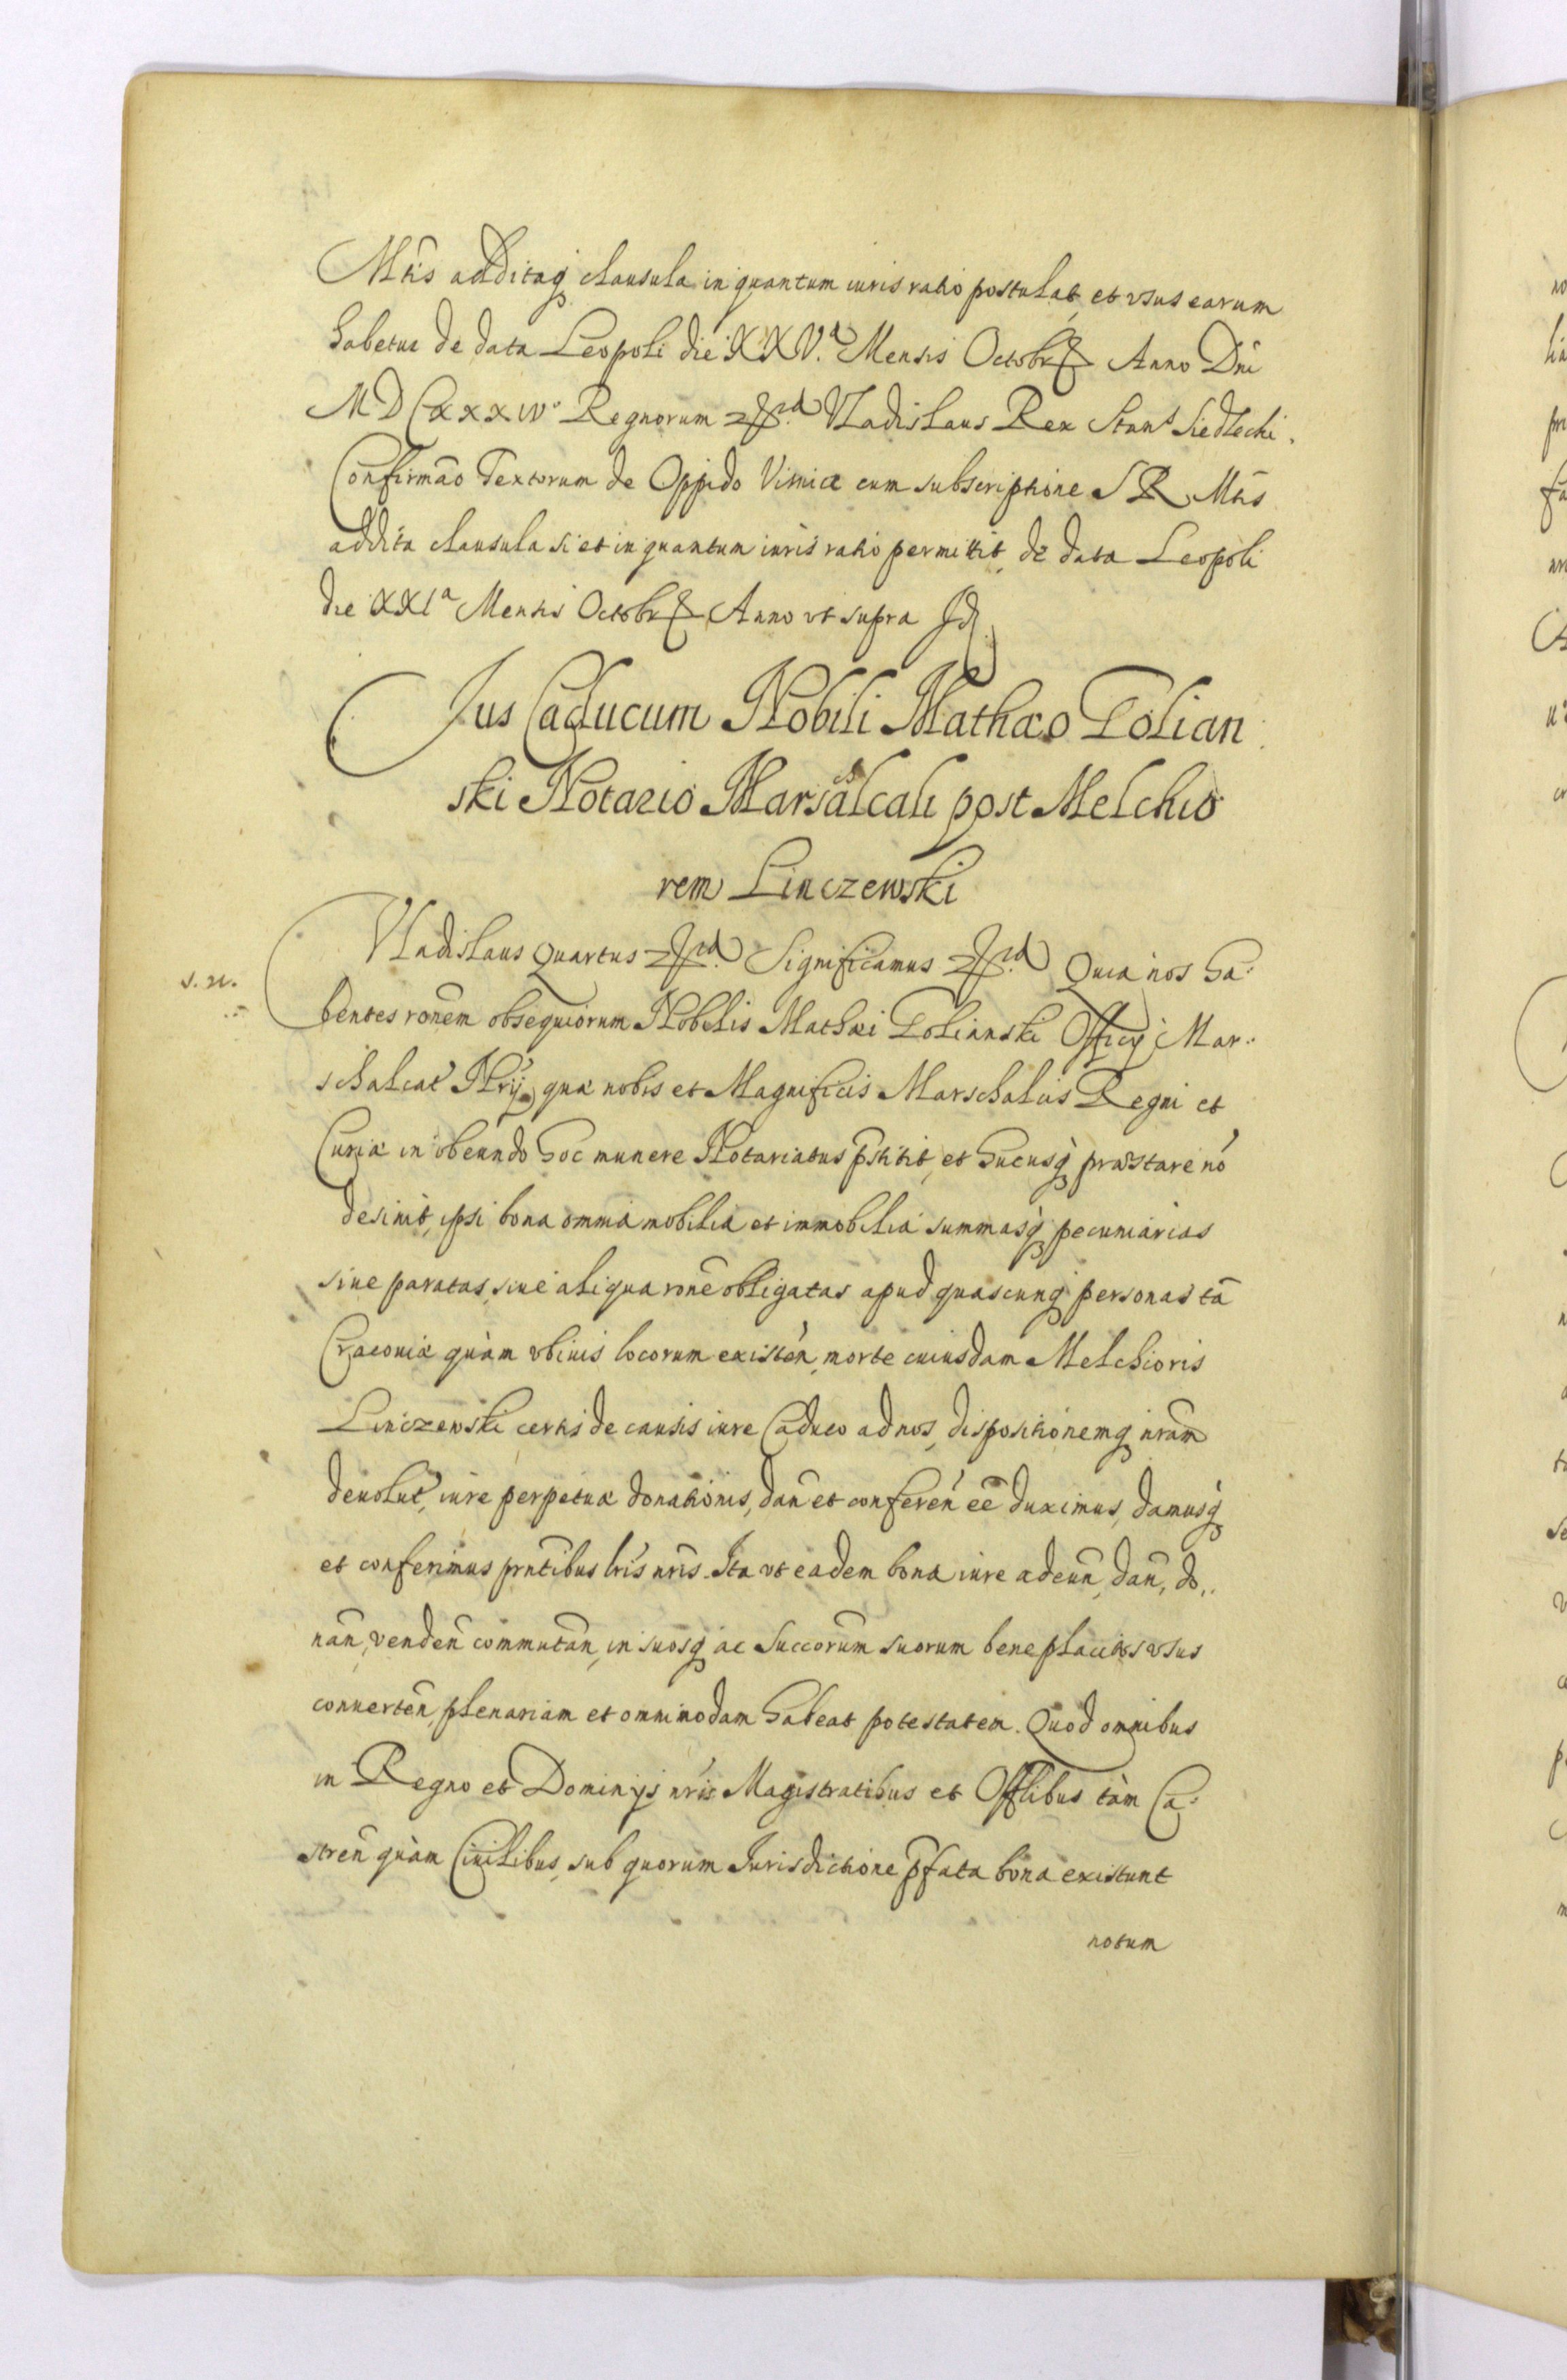 Mtis̄ additaq́ clausula in quantum iuris ratio postulat, et usus earum
habetur de data Leopoli die XXV.a Mensis Octobr Anno Dni
MDCXXXIVo Regnorum Vladislaus Rex Stans Siedlecki.
Confirmāo Textorum de Oppido Visnicæ cum subscriptione S R Mtis̄
addita clausula si et in quantum iuris ratio permittit, de data Leopoli
die XXIa Mensis Octobr Anno vt supra Id
Jus Caducum Nobili Mathæo Polian
ski Notario Marsalcali post Melchio
rem Linczewski
Vladislaus Quartus Significamus Quia nos ha:
s. n.
bentes ronēm obsequiorum Nobilis Mathæi Polianski Officij Mar:
schalcal Nrij quæ nobis et Magnificis Marschalcis Regni et
Curiæ in obeundo hoc munere Notariatus p̄stitit, et hucusq́ præstare nō
desinit, ipsi bona omnia mobilia et immobilia summasq́ pecuniarias
siue paratas, siue aliqua ronē obligatas apud quascunq́ personas tā
Cracouiæ quàm vbiuis locorum existeń, morte cuiusdam Melchioris
Linczewski certis de causis iure Caduco ad nos, dispositionemq́ nrām
deuolut, iure perpetuæ donationis, dan̄ et conferen̄ eē duximus, damusq́
et conferimus prn̄tibus lrīs nrīs. Ita vt eadem bona iure adeun̄, dan̄, do,,
nan̄, venden̄ commutan̄, in suosq́ ac Succorūm suorum beneplacitos vsus
conuerten̄, plenariam et omnimodam habeat potestatem. Quod omnibus
in Regno et Dominijs nrīs Magistratibus et Offlibus tàm Ca:
stren̄ quàm Ciuilibus, sub quorum Jurisdictione p̄fata bona existunt
notum